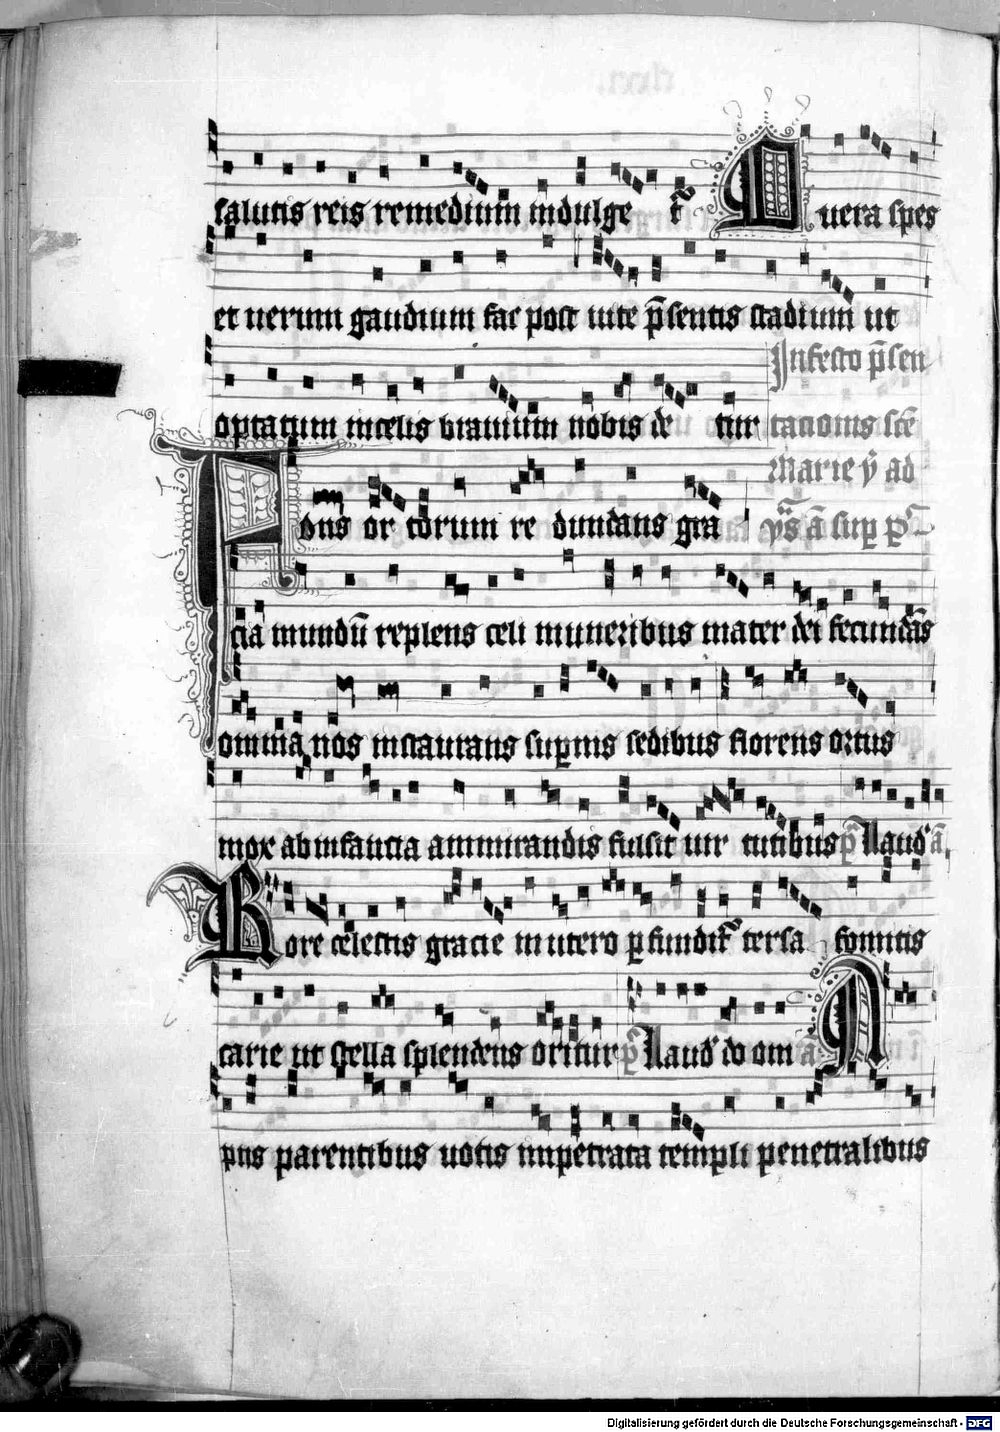 salutis reis remedium indulge tʳ O uera spes
et uerum gaudium fac post uite p̄sentis stadium ut
optatum incelis brauium nobis de tur
In festo p̄sen
tacionis scē
Marie ỹ ad
ỹs ā sup
Fons or torum re dundans gra
cia mundū replens celi muneribus mater dei fecundās
omnia nos instaurans suꝑnis sedibus florens ortus
mox ab infancia ammirandis fulsit uir tutibus p̄ Laud ā
Rore celestis gracie in utero ꝑfundit tersa fomitis
carie ut stella splendens oritur p̄ Laud do om ā A
pns parentibus uotis impetrata templi penetralibus
Digitalisierung gefördert durch die Deutsche Forschungsgemeinschaft - DFG